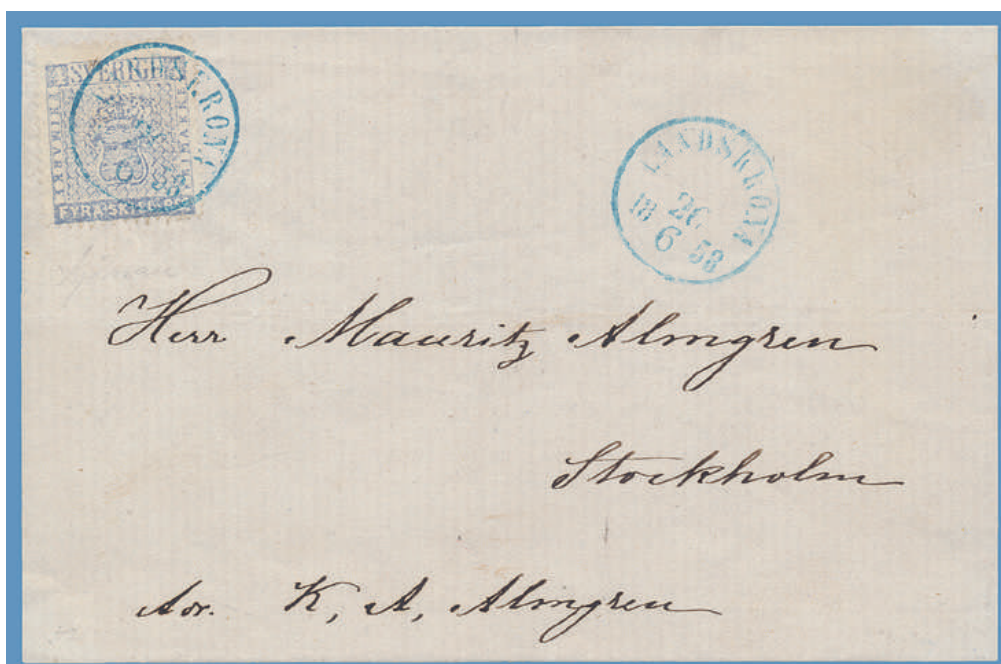 SVERIGE
FYRA SKILL. BCO
LANDSKRONA
26
18 6 58
Herr Mauritz Almgren
Stockholm
Adr. K, A, Almgren